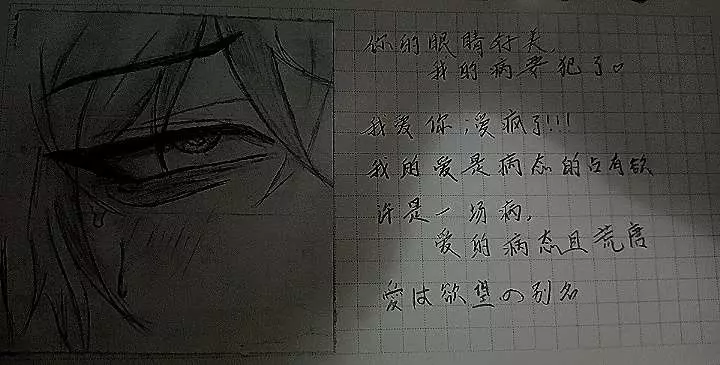 你的眼睛好美
我的病要犯了。
我爱你,爱疯了!!!
我的爱是病态的占有欲
许是一场病,
爱的病态且荒唐
愛は欲望の别名